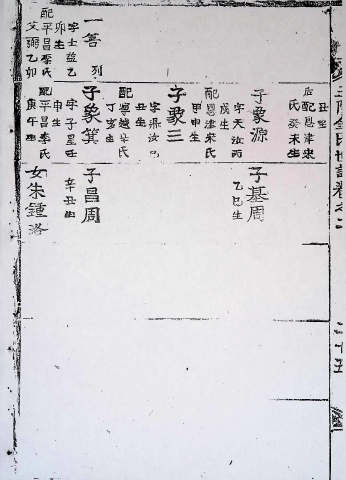 丑生
后配恩津宋
氏癸未生
子象源
字天汝丙
戌生
配恩津宋氏
甲申生
子象三
字鼎汝己
丑生
丁亥生
子象箕
字子星壬
申生
配平昌李氏
庚午生
一善
列
字士益乙
卯生
配平昌李氏
父彌乙卯
子基周
乙巳生
子昌周
辛丑生
女朱鍾洛
金氏世譜卷之二
二十五